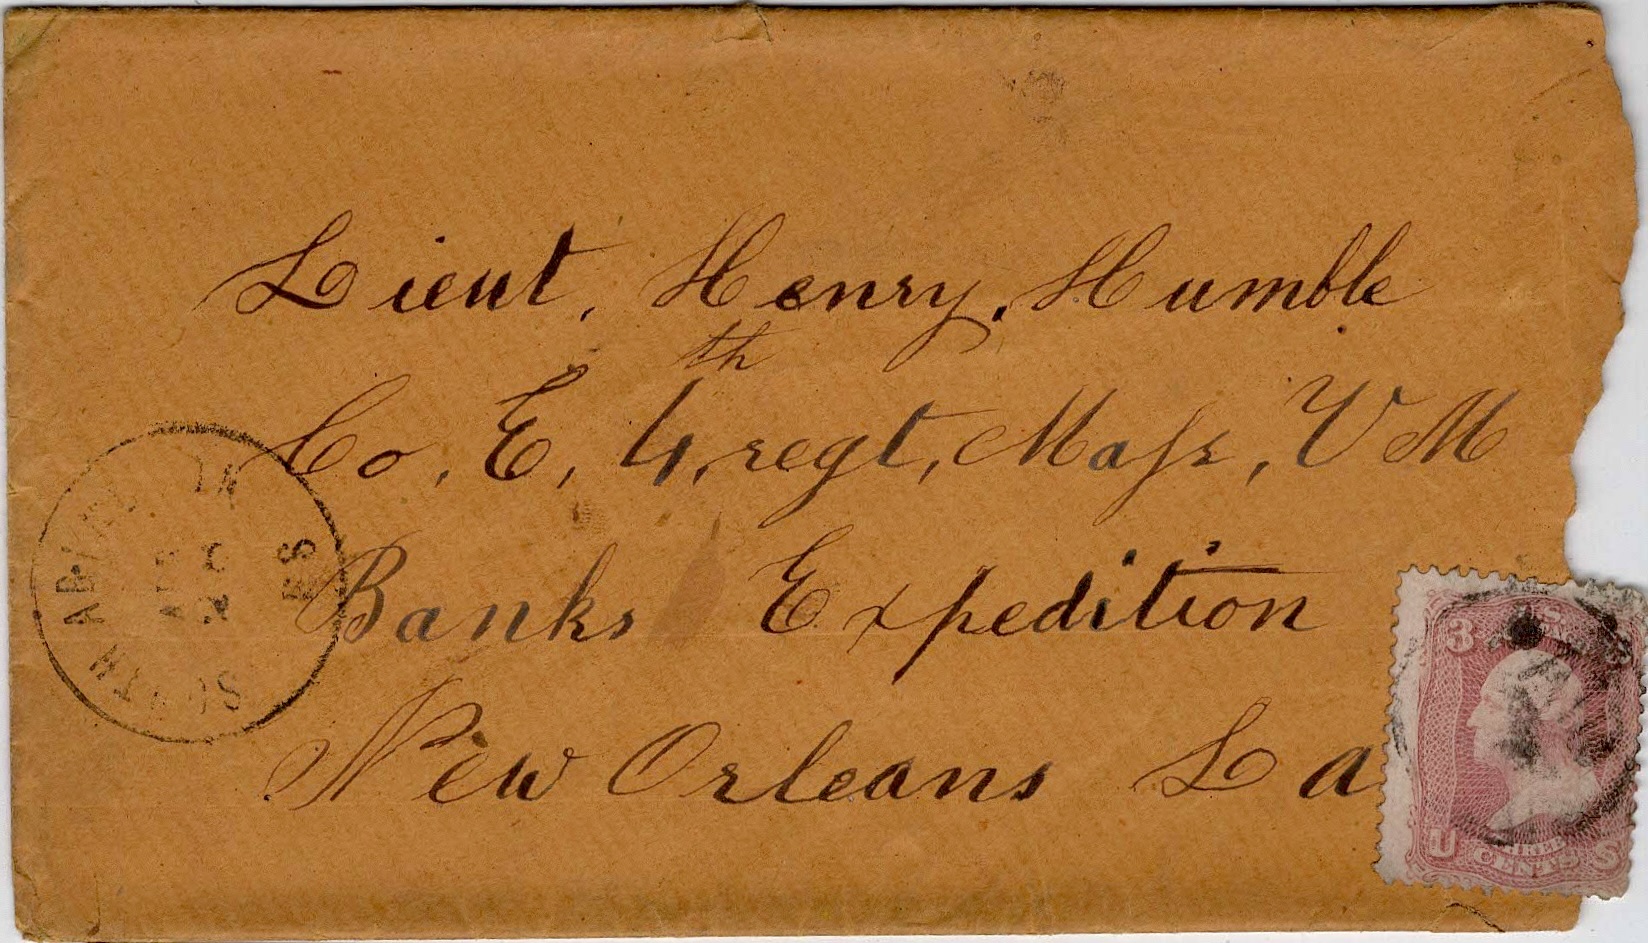 Lieut, Henry, Humble
Co, E, 4,th regt, Maſs, V M
Banks Expedition
New Orleans La
SOUTH
MS
3
U S
THREE
CENTS